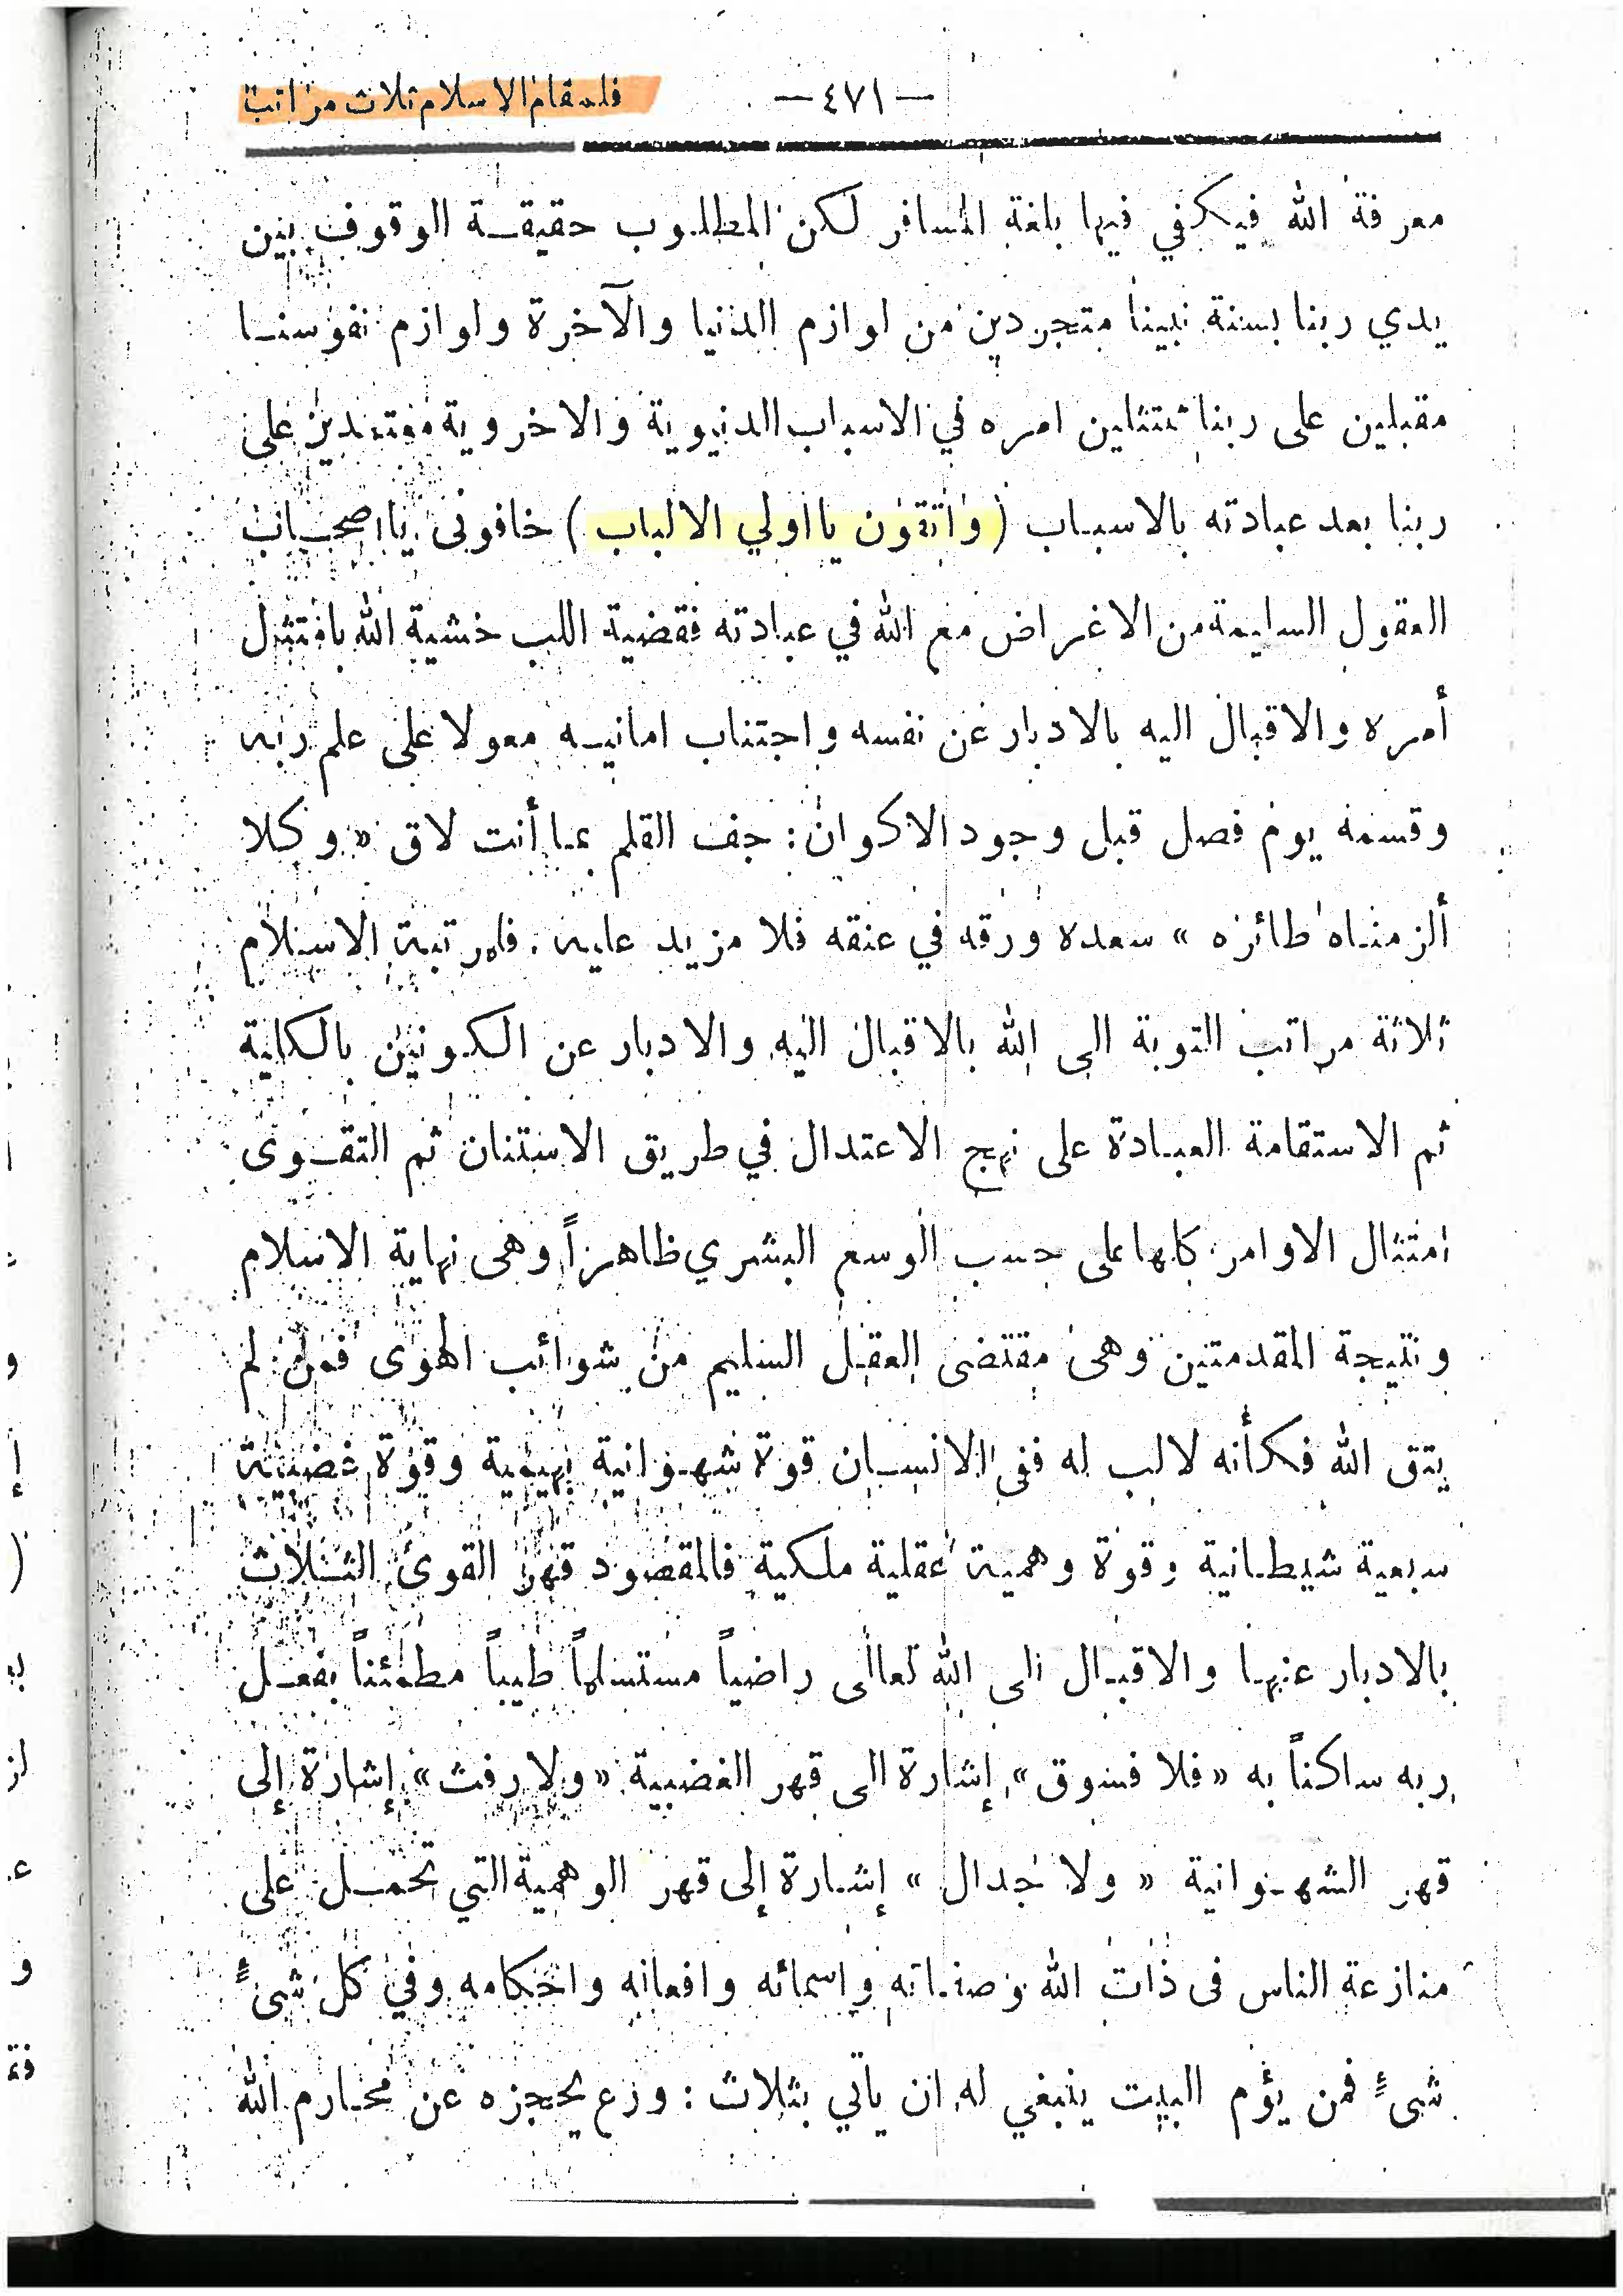 فلمقام الاسلام ثلاث مراتب
— ٤٧١ —
معرفة الله فيكفي فيها بلغة المسافر لكن المطلوب حقيقة الوقوف بين
يدي ربنا بسنة نبينا متجردين من لوازم الدنيا والآخرة ولوازم نفوسنا
مقبلين على ربنا ممتثلين امره في الاسباب الدنيوية والاخروية معتمدين على
ربنا بعد عبادته بالاسباب ( واتقون يا اولي الالباب ) خافونى يا اصحاب
العقول السليمة من الاغراض مع الله في عبادته فقضية اللب خشية الله بامتثال
أمره والاقبال اليه بالادبار عن نفسه واجتناب امانيه معولا على علم ربه
وقسمه يوم فصل قبل وجود الاكوان : جف القلم بما أنت لاق « وكلا
ألزمناه طائره » سعده ورقه في عنقه فلا مزيد عليه . فلمرتبة الاسلام
ثلاثة مراتب التوبة الى الله بالاقبال اليه والادبار عن الكونين بالكلية
ثم الاستقامة العبادة على نهج الاعتدال في طريق الاستنان ثم التقوى
امتثال الاوامر كلها على حسب الوسع البشري ظاهراً وهى نهاية الاسلام
ونتيجة المقدمتين وهى مقتضى العقل السليم من شوائب الهوى فمن لم
يتق الله فكأنه لا لب له ففى الانسان قوة شهوانية بهيمية وقوة غضبية
سبعية شيطانية وقوة وهمية عقلية ملكية فالمقصود قهر القوى الثلاث
بالادبار عنها والاقبال الى الله تعالى راضياً مستسلماً طيباً مطمئناً بفعل
ربه ساكناً به « فلا فسوق » إشارة الى قهر الغضبية « ولا رفث » إشارة إلى
قهر الشهوانية « ولا جدال » إشارة إلى قهر الوهمية التي تحمل على
منازعة الناس فى ذات الله وصفاته واسمائه وافعاله واحكامه وفي كل شىءٍ
شىءٍ فمن يؤم البيت ينبغي له ان يأتي بثلاث : ورع يحجزه عن محارم الله